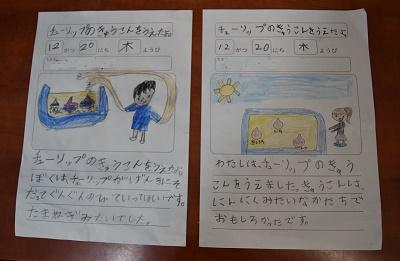 チューリップのきゅうこんをうえたよ
12 がつ 20 にち 木 ようび
チューリップのきゅうこんをうえたよ。
ぼくは、チューリップがげん気にそ
だってぐんぐんのびていってほしいです。
たまねぎみたいでした。
チューリップのきゅうこんをうえたよ
12 がつ 20 にち 木 ようび
わたしは、チューリップのきゅう
こんをうえました。きゅうこんは、
にんにくみたいなかたちで
おもしろかったです。